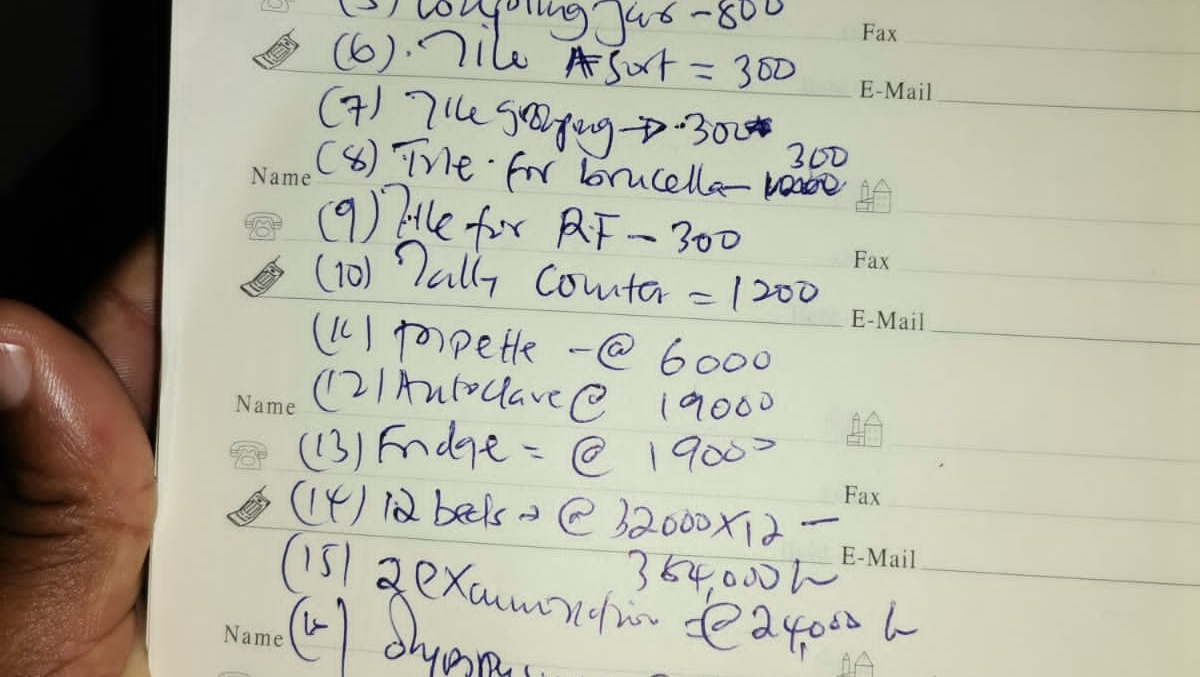 (5) Coupling Jar - 800
Fax
(6). Tile A sort = 300
E-Mail
(7) Tile grouping → 300
300
Name (8) Tile for brucella -
(9) Tile for RF - 300
Fax
(10) Tally Counter = 1200
E-Mail
(11) pipette - @ 6000
Name (12) Autoclave @ 19000
(13) Fridge = @ 19000
Fax
(14) 12 beds → @ 32000X12 -
E-Mail
384,000
(15) 2 examination @ 24,000
Name